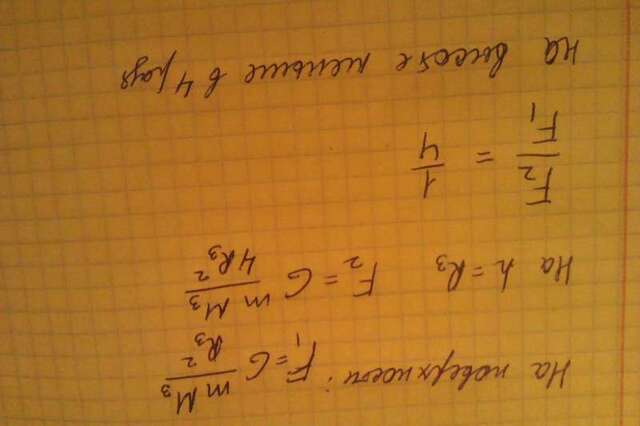 На поверхности: F₁ = G mM₃/R₃²
На h = R₃ F₂ = G mM₃/4R₃²
F₂/F₁ = 1/4
на высоте меньше в 4 раза